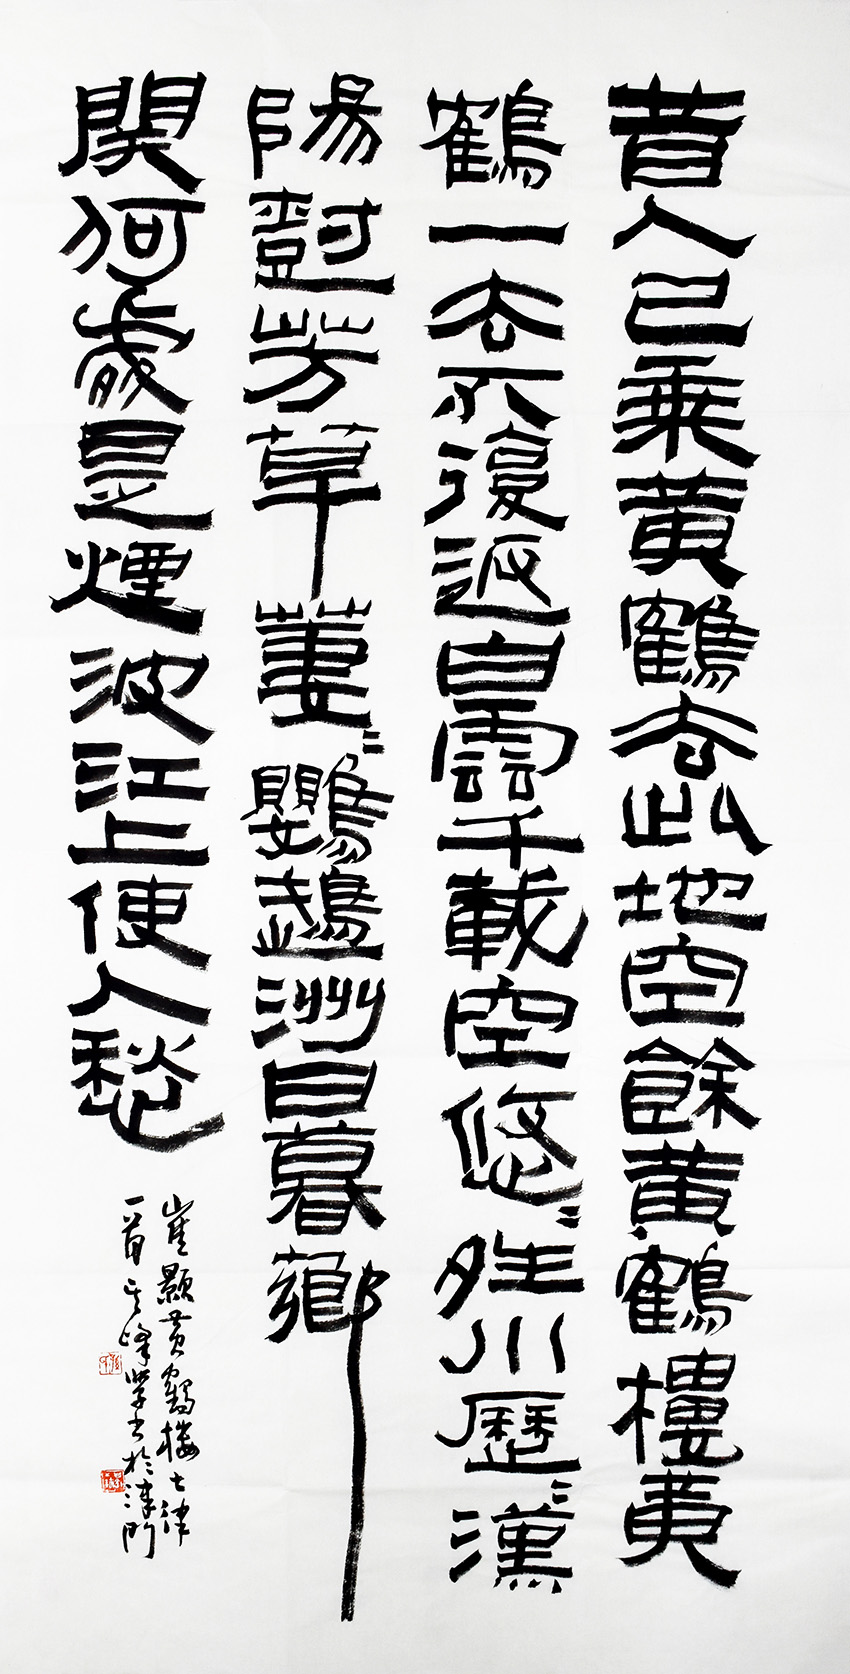 昔人已乘黄鶴去此地空餘黄鶴樓黄
鶴一去不復返白雲千載空悠〻晴川歷〻漢
陽樹芳草萋〻鸚鵡洲日暮鄉
関何處是煙波江上使人愁
崔顥黄鶴樓七律
一首其峰學書於津門